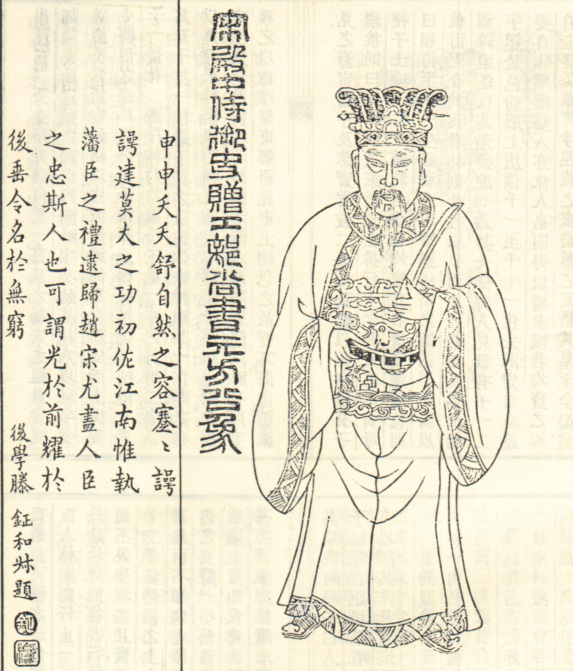 宋殿中侍御史贈工部尚書元方公象
申申夭夭舒自然之容蹇〻諤
諤達莫大之功初佐江南惟執
藩臣之禮逮歸趙宋尤盡人臣
之忠斯人也可謂光於前耀於
後垂令名於無窮
後學滕 鉦和叔題